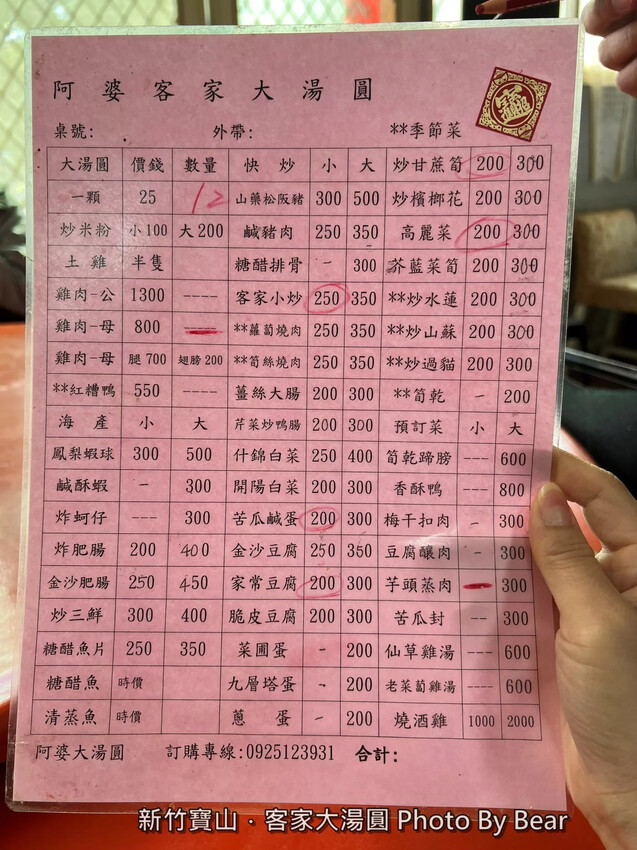 阿婆客家大湯圓
桌號: 外帶: **季節菜
大湯圓 價錢 數量 快炒 小 大 炒甘蔗筍 200 300
一顆 25 12 山藥松阪豬 300 500 炒檳榔花 200 300
炒米粉 小100 大200 鹹豬肉 250 350 高麗菜 200 300
土雞 半隻 糖醋排骨 - 300 芥藍菜筍 200 300
雞肉-公 1300 ---- 客家小炒 250 350 **炒水蓮 200 300
雞肉-母 800 ---- **蘿蔔燒肉 250 350 **炒山蘇 200 300
雞肉-母 腿700 翅膀200 **筍絲燒肉 250 350 **炒過貓 200 300
**紅糟鴨 550 ---- 薑絲大腸 200 300 **筍乾 - 200
海產 小 大 芹菜炒鴨腸 200 300 預訂菜 小 大
鳳梨蝦球 300 500 什錦白菜 250 400 筍乾蹄膀 --- 600
鹹酥蝦 - 300 開陽白菜 200 300 香酥鴨 --- 800
炸蚵仔 --- 300 苦瓜鹹蛋 200 300 梅干扣肉 - 300
炸肥腸 200 400 金沙豆腐 250 350 豆腐釀肉 - 300
金沙肥腸 250 450 家常豆腐 200 300 芋頭蒸肉 300
炒三鮮 300 400 脆皮豆腐 200 300 苦瓜封 -- 300
糖醋魚片 250 350 菜圃蛋 - 200 仙草雞湯 --- 600
糖醋魚 時價 九層塔蛋 - 200 老菜蔔雞湯 ---- 600
清蒸魚 時價 蔥蛋 - 200 燒酒雞 1000 2000
阿婆大湯圓 訂購專線:0925123931 合計:
新竹寶山．客家大湯圓 Photo By Bear